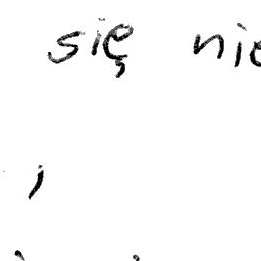 się nie
,